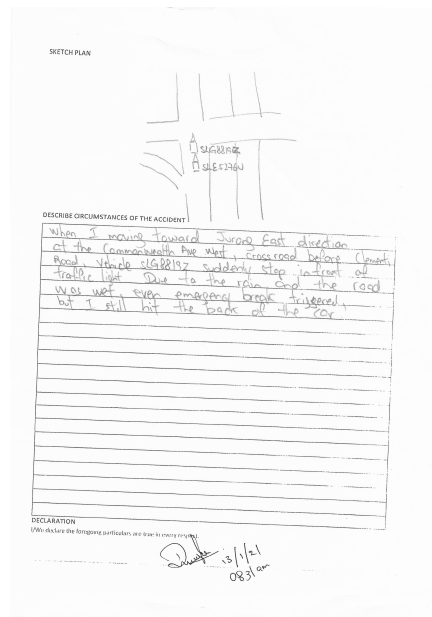 SKETCH PLAN
SLG8819Z
SLE5276U
DESCRIBE CIRCUMSTANCES OF THE ACCIDENT
When I moving toward Jurong East direction
at the Commonwealth Ave West, crossroad before Clementi
Road, Vehicle SLG8819Z suddenly stop infront of
traffic light. Due to the rain and the road
was wet even emergency break triggered,
but I still hit the back of the car
DECLARATION
I/We declare the foregoing particulars are true in every respect.
13/1/21
0831 am